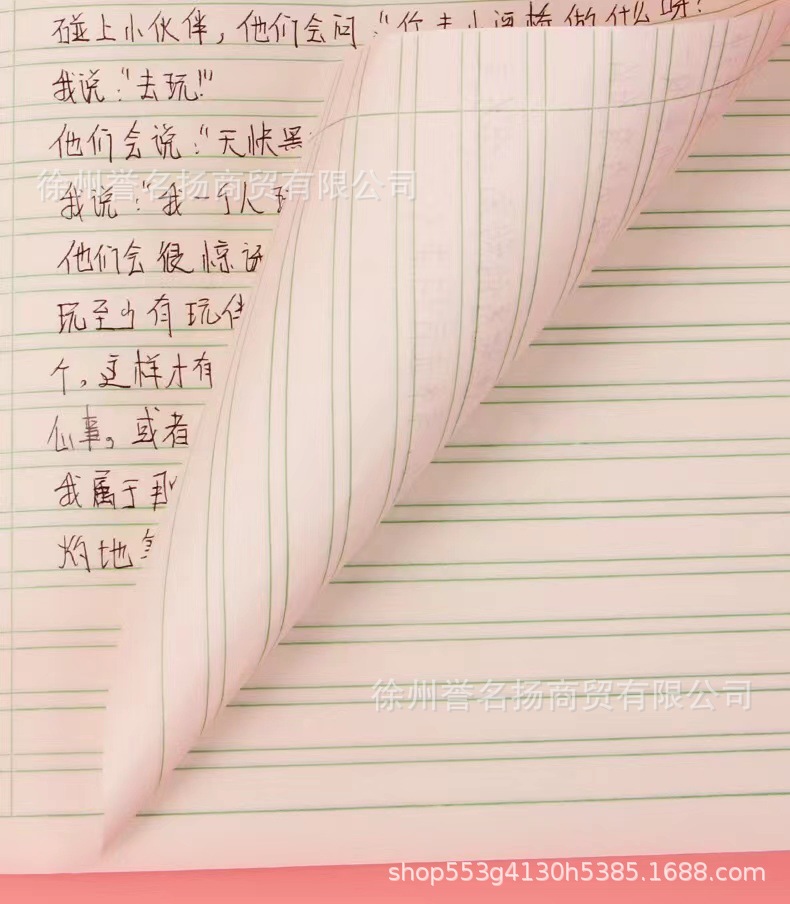 碰上小伙伴，他们会问：“你去小酒桥做什么呀？
我说：“去玩！”
他们会说：“天快黑
徐州誉名扬商贸有限公司
我说：“我一个人
他们会很惊讶
玩至少有玩伴
个，这样才有
仙事。或者
我属于那
灼地
徐州誉名扬商贸有限公司
shop553g4130h5385.1688.com